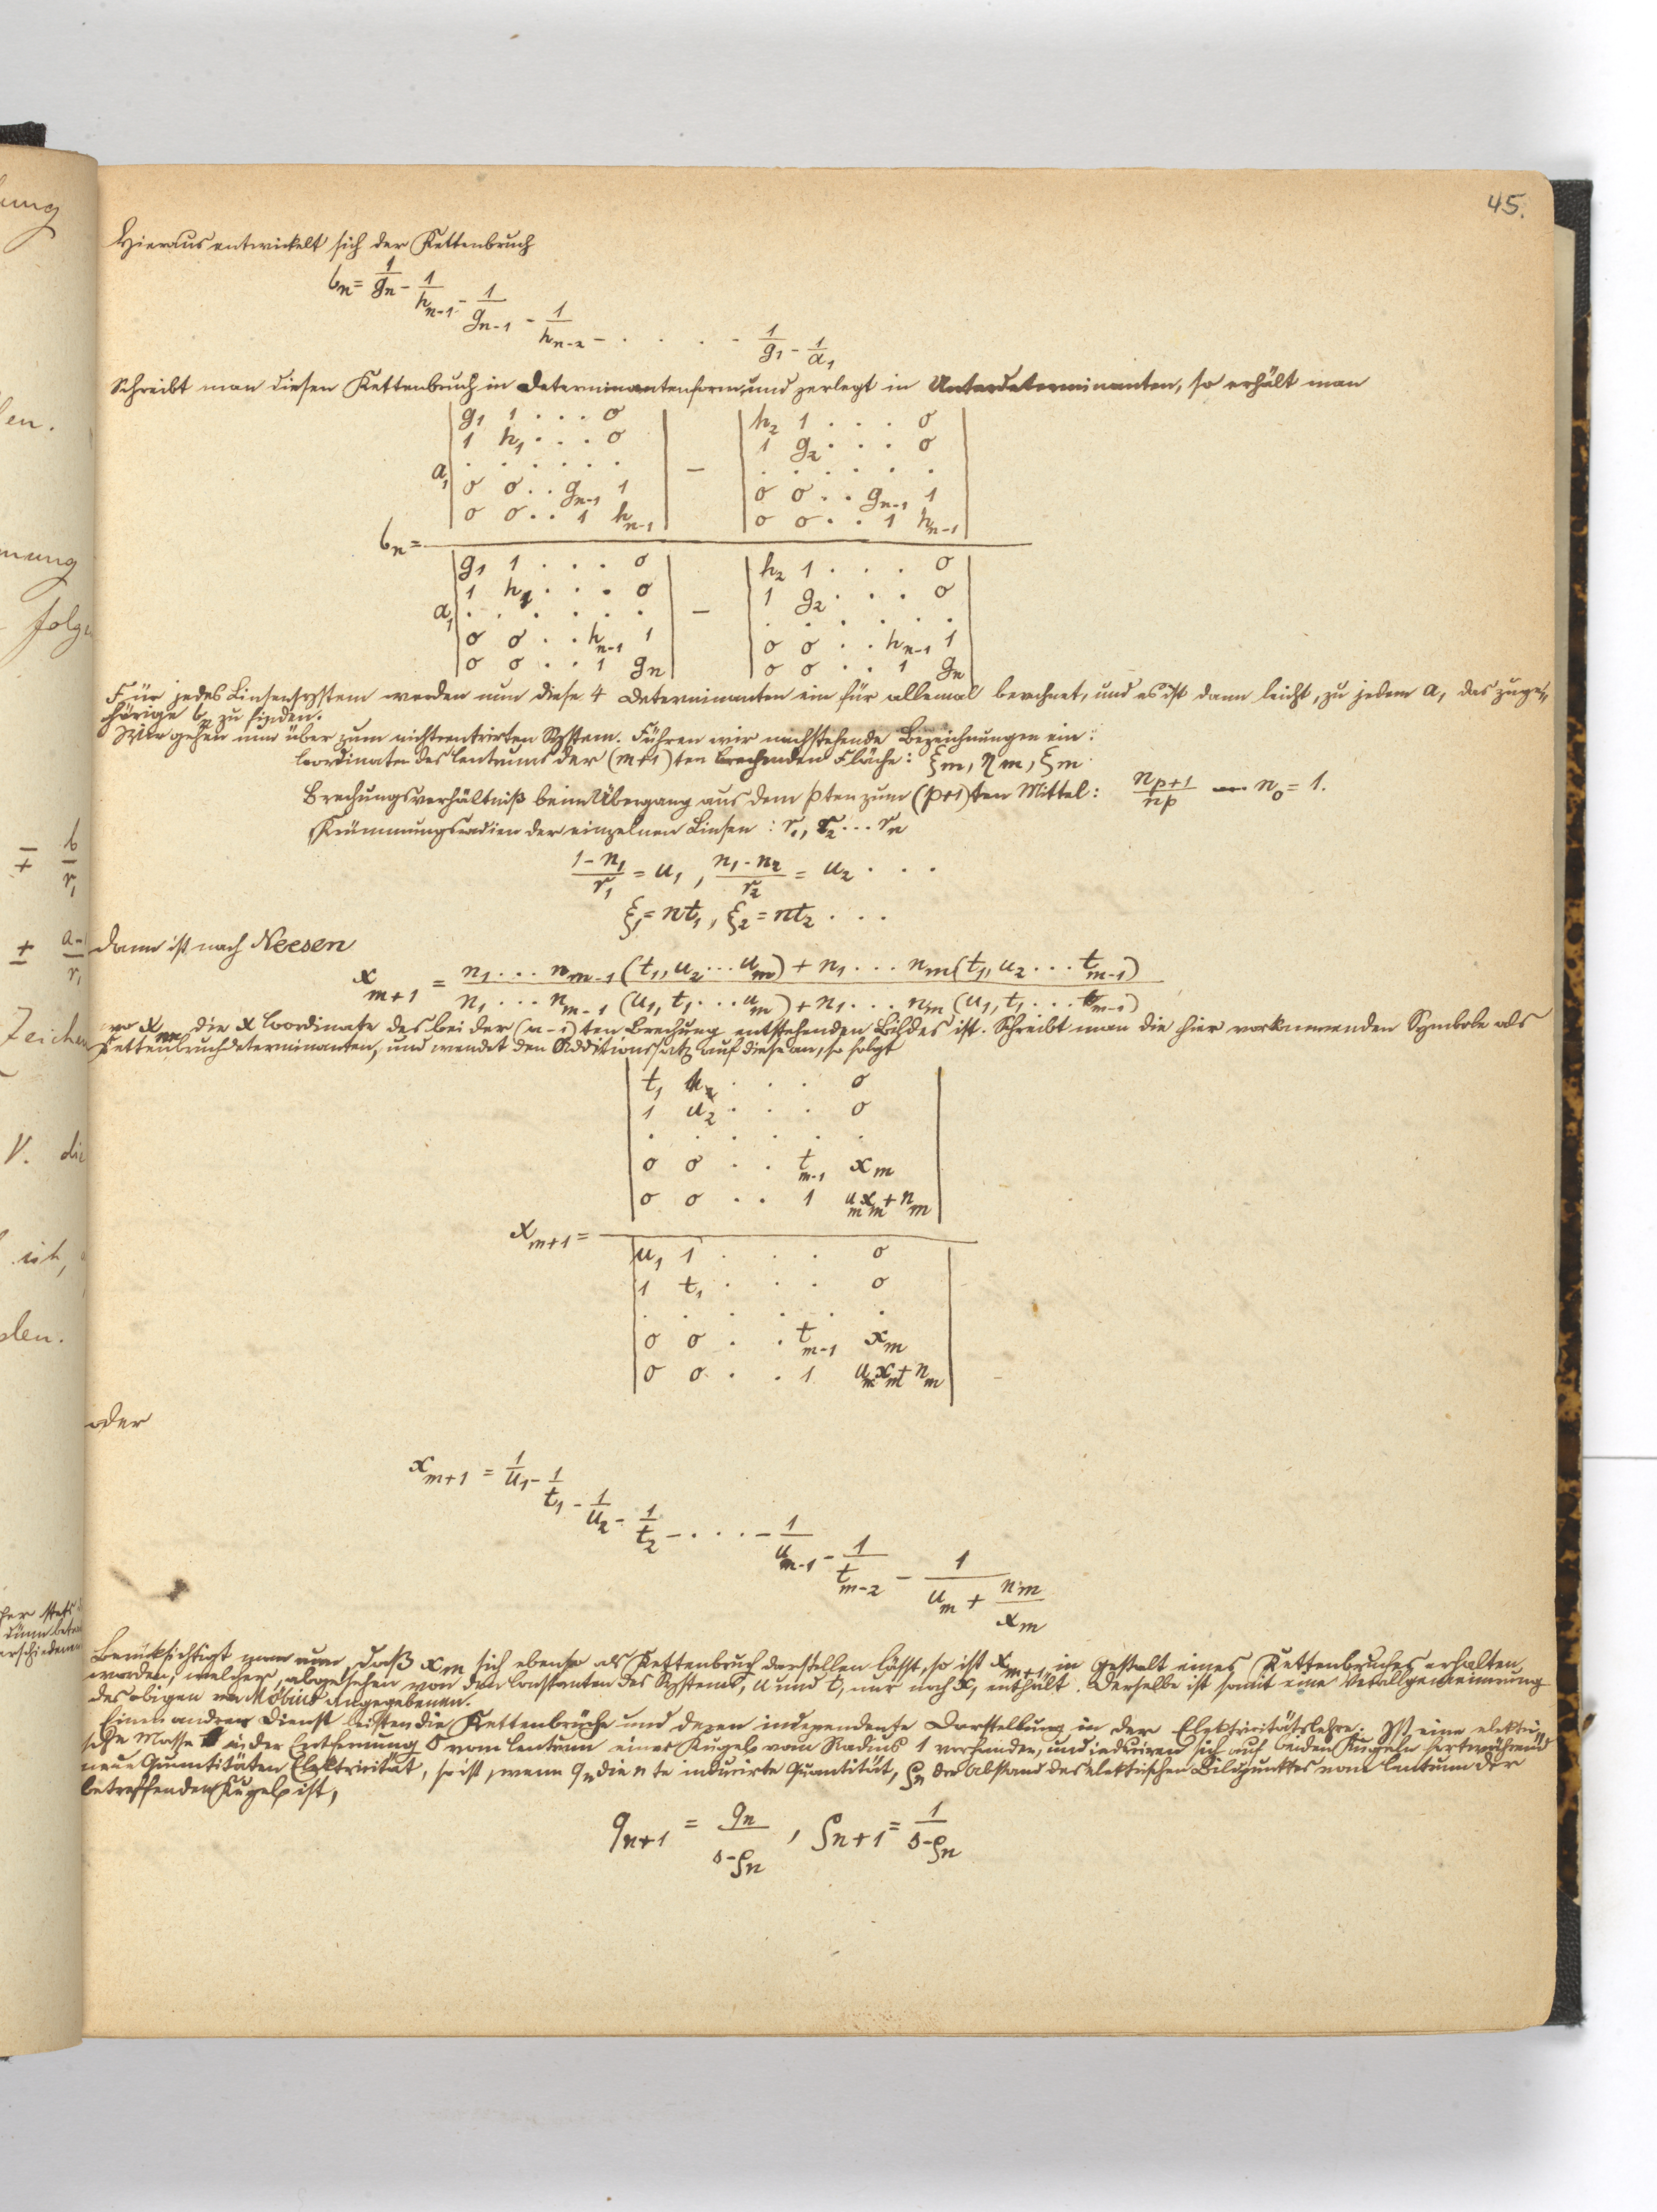 45.
Hieraus entwickelt sich der Kettenbruch
b_n = 1/g_n - 1/h_{n-1} - 1/g_{n-1} - 1/h_{n-2} - . . . . - 1/g_1 - 1/a_1
Schreibt man diesen Kettenbruch in Determinantenform und zerlegt in Unterdeterminanten, so erhält man
|g_1 1 . . . 0| |h_2 1 . . . 0|
|1 h_1 . . . 0| |1 g_2 . . . 0|
a_1 |. . . . . .| - |. . . . . .|
|0 0 . . g_{n-1} 1| |0 0 . . g_{n-1} 1|
|0 0 . . 1 h_{n-1}| |0 0 . . 1 h_{n-1}|
b_n =
|g_1 1 . . . 0| |h_2 1 . . . 0|
|1 h_1 . . . 0| |1 g_2 . . . 0|
a_1 |. . . . . .| - |. . . . . .|
|0 0 . . h_{n-1} 1| |0 0 . . h_{n-1} 1|
|0 0 . . 1 g_n| |0 0 . . 1 g_n|
Für jedes Linsensystem werden nun diese 4 Determinanten ein für allemal berechnet, und es ist dann leicht, zu jedem a_1 das zuge=
hörige b_n zu finden.
Wir gehen nun über zum nichtcentrirten System. Führen wir nachstehende Bezeichnungen ein:
Coordinaten des Centrums der (m+1)ten brechenden Fläche: ξ_m, η_m, ξ_m
Brechungsverhältniß beim Übergang aus dem pten zum (p+1)ten Mittel: n_{p+1}/n_p n_0 = 1.
Krümmungsradien der einzelnen Linsen: r_1, r_2 ... r_n
(1-n_1)/r_1 = u_1, (n_1-n_2)/r_2 = u_2 . . .
ξ_1 = nt_1, ξ_2 = nt_2 . . .
Dann ist nach Neesen
x_{m+1} = (n_1 ... n_{m-1} (t_1, u_2 ... u_m) + n_1 ... n_m (t_1, u_2 ... t_{m-1})) / (n_1 ... n_{m-1} (u_1, t_1 ... u_m) + n_1 ... n_m (u_1, t_1 ... t_{m-1}))
wo x_m die x Coordinate des bei der (n-1)ten Brechung entstehenden Bildes ist. Schreibt man die hier vorkommenden Symbole als
Kettenbruchdeterminanten, und wendet den Additionssatz auf diese an, so folgt
|t_1 . . . 0|
|1 u_2 . . . 0|
|. . . . . .|
|0 0 . . t_{m-1} x_m|
|0 0 . . 1 u_m x_m + n_m|
x_{m+1} =
|u_1 1 . . . 0|
|1 t_1 . . . 0|
|. . . . . .|
|0 0 . . t_{m-1} x_m|
|0 0 . . 1 u_m x_m + n_m|
oder
x_{m+1} = 1/u_1 - 1/t_1 - 1/u_2 - 1/t_2 - . . . - 1/u_{m-1} - 1/t_{m-2} - 1/(u_m + n_m/x_m)
Berücksichtigt man nun, daß x_m sich ebenso als Kettenbruch darstellen lässt, so ist x_{m+1} in Gestalt eines Kettenbruches erhalten
worden, welcher, abgesehen von den Constanten des Systems, u und t, nur noch x_1 enthält. Derselbe ist somit eine Verallgemeinerung
des obigen von Möbius angegebenen.
Einen andren Dienst leisten die Kettenbrüche und deren independente Darstellung in der Elektricitätslehre. Ist eine elektri=
sche Masse in der Entfernung vom Centrum einer Kugel vom Radius 1 vorhanden, und induciren sich auf beiden Kugeln fortwährend
neue Quantitäten Elektricität, so ist, wenn q_n die n te inducirte Quantität, ρ_n der Abstand des elektrischen Bildpunktes vom Centrum der
betreffenden Kugel ist,
q_{n+1} = q_n/(s-ρ_n), ρ_{n+1} = 1/(s-ρ_n)